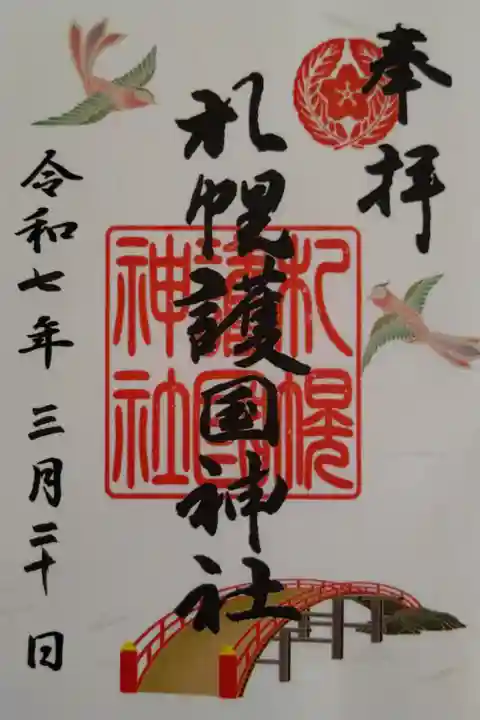 奉拝
札幌護国神社
札幌
護国
神社
令和七年三月二十日